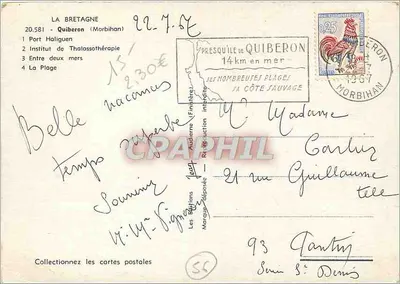 LA BRETAGNE
20.581 - Quiberon (Morbihan)
1 Port Haliguen
2 Institut de Thalassothérapie
3 Entre deux mers
4 La Plage
22.7.67
15-
2.30€
PRESQU'ILE DE QUIBERON
14 km en mer
SES NOMBREUSES PLAGES
SA CÔTE SAUVAGE
QUIBERON
1967
MORBIHAN
Belle vacances
temps superbe
Souvenir
Mr Me
Les Éditions Jos Audierne (Finistère)
Marque déposée - Reproduction interdite
CPAPHIL
Mr Madame
21 rue Guillaume
Tell
93 Pantin
Seine St Denis
56
Collectionnez les cartes postales